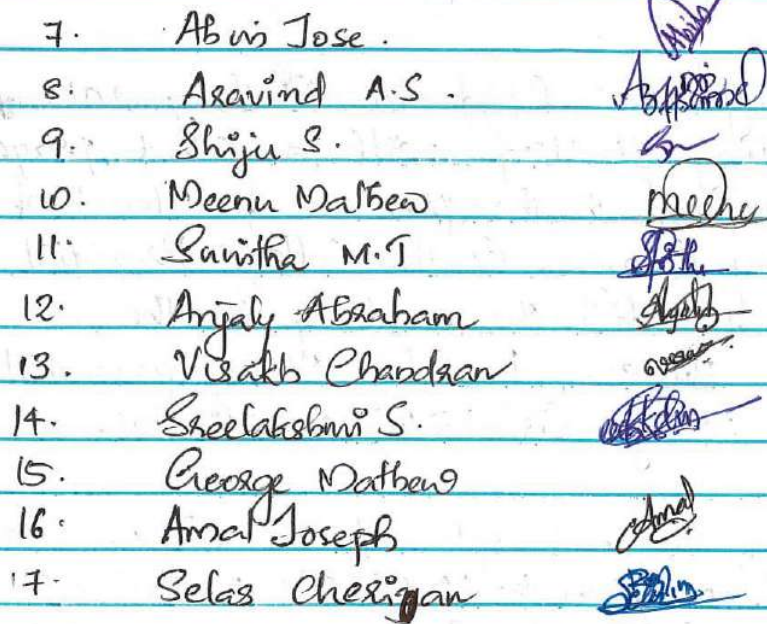 7. Abin Jose.
8. Aravind A.S.
9. Shiju S.
10. Meenu Mathew meenu
11. Sunitha M.T
12. Anjaly Abraham
13. Visakh Chandran
14. Sreelakshmi S.
15. George Mathew
16. Amal Joseph Amal
17. Selas Cheriyan